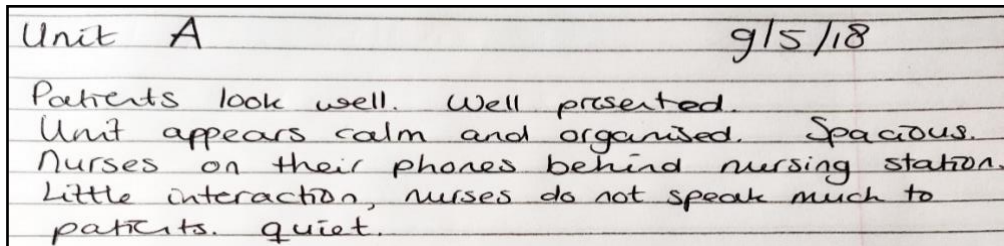 Unit A 9/5/18
Patients look well. Well presented.
Unit appears calm and organised. Spacious.
Nurses on their phones behind nursing station.
Little interaction, nurses do not speak much to
patients. quiet.